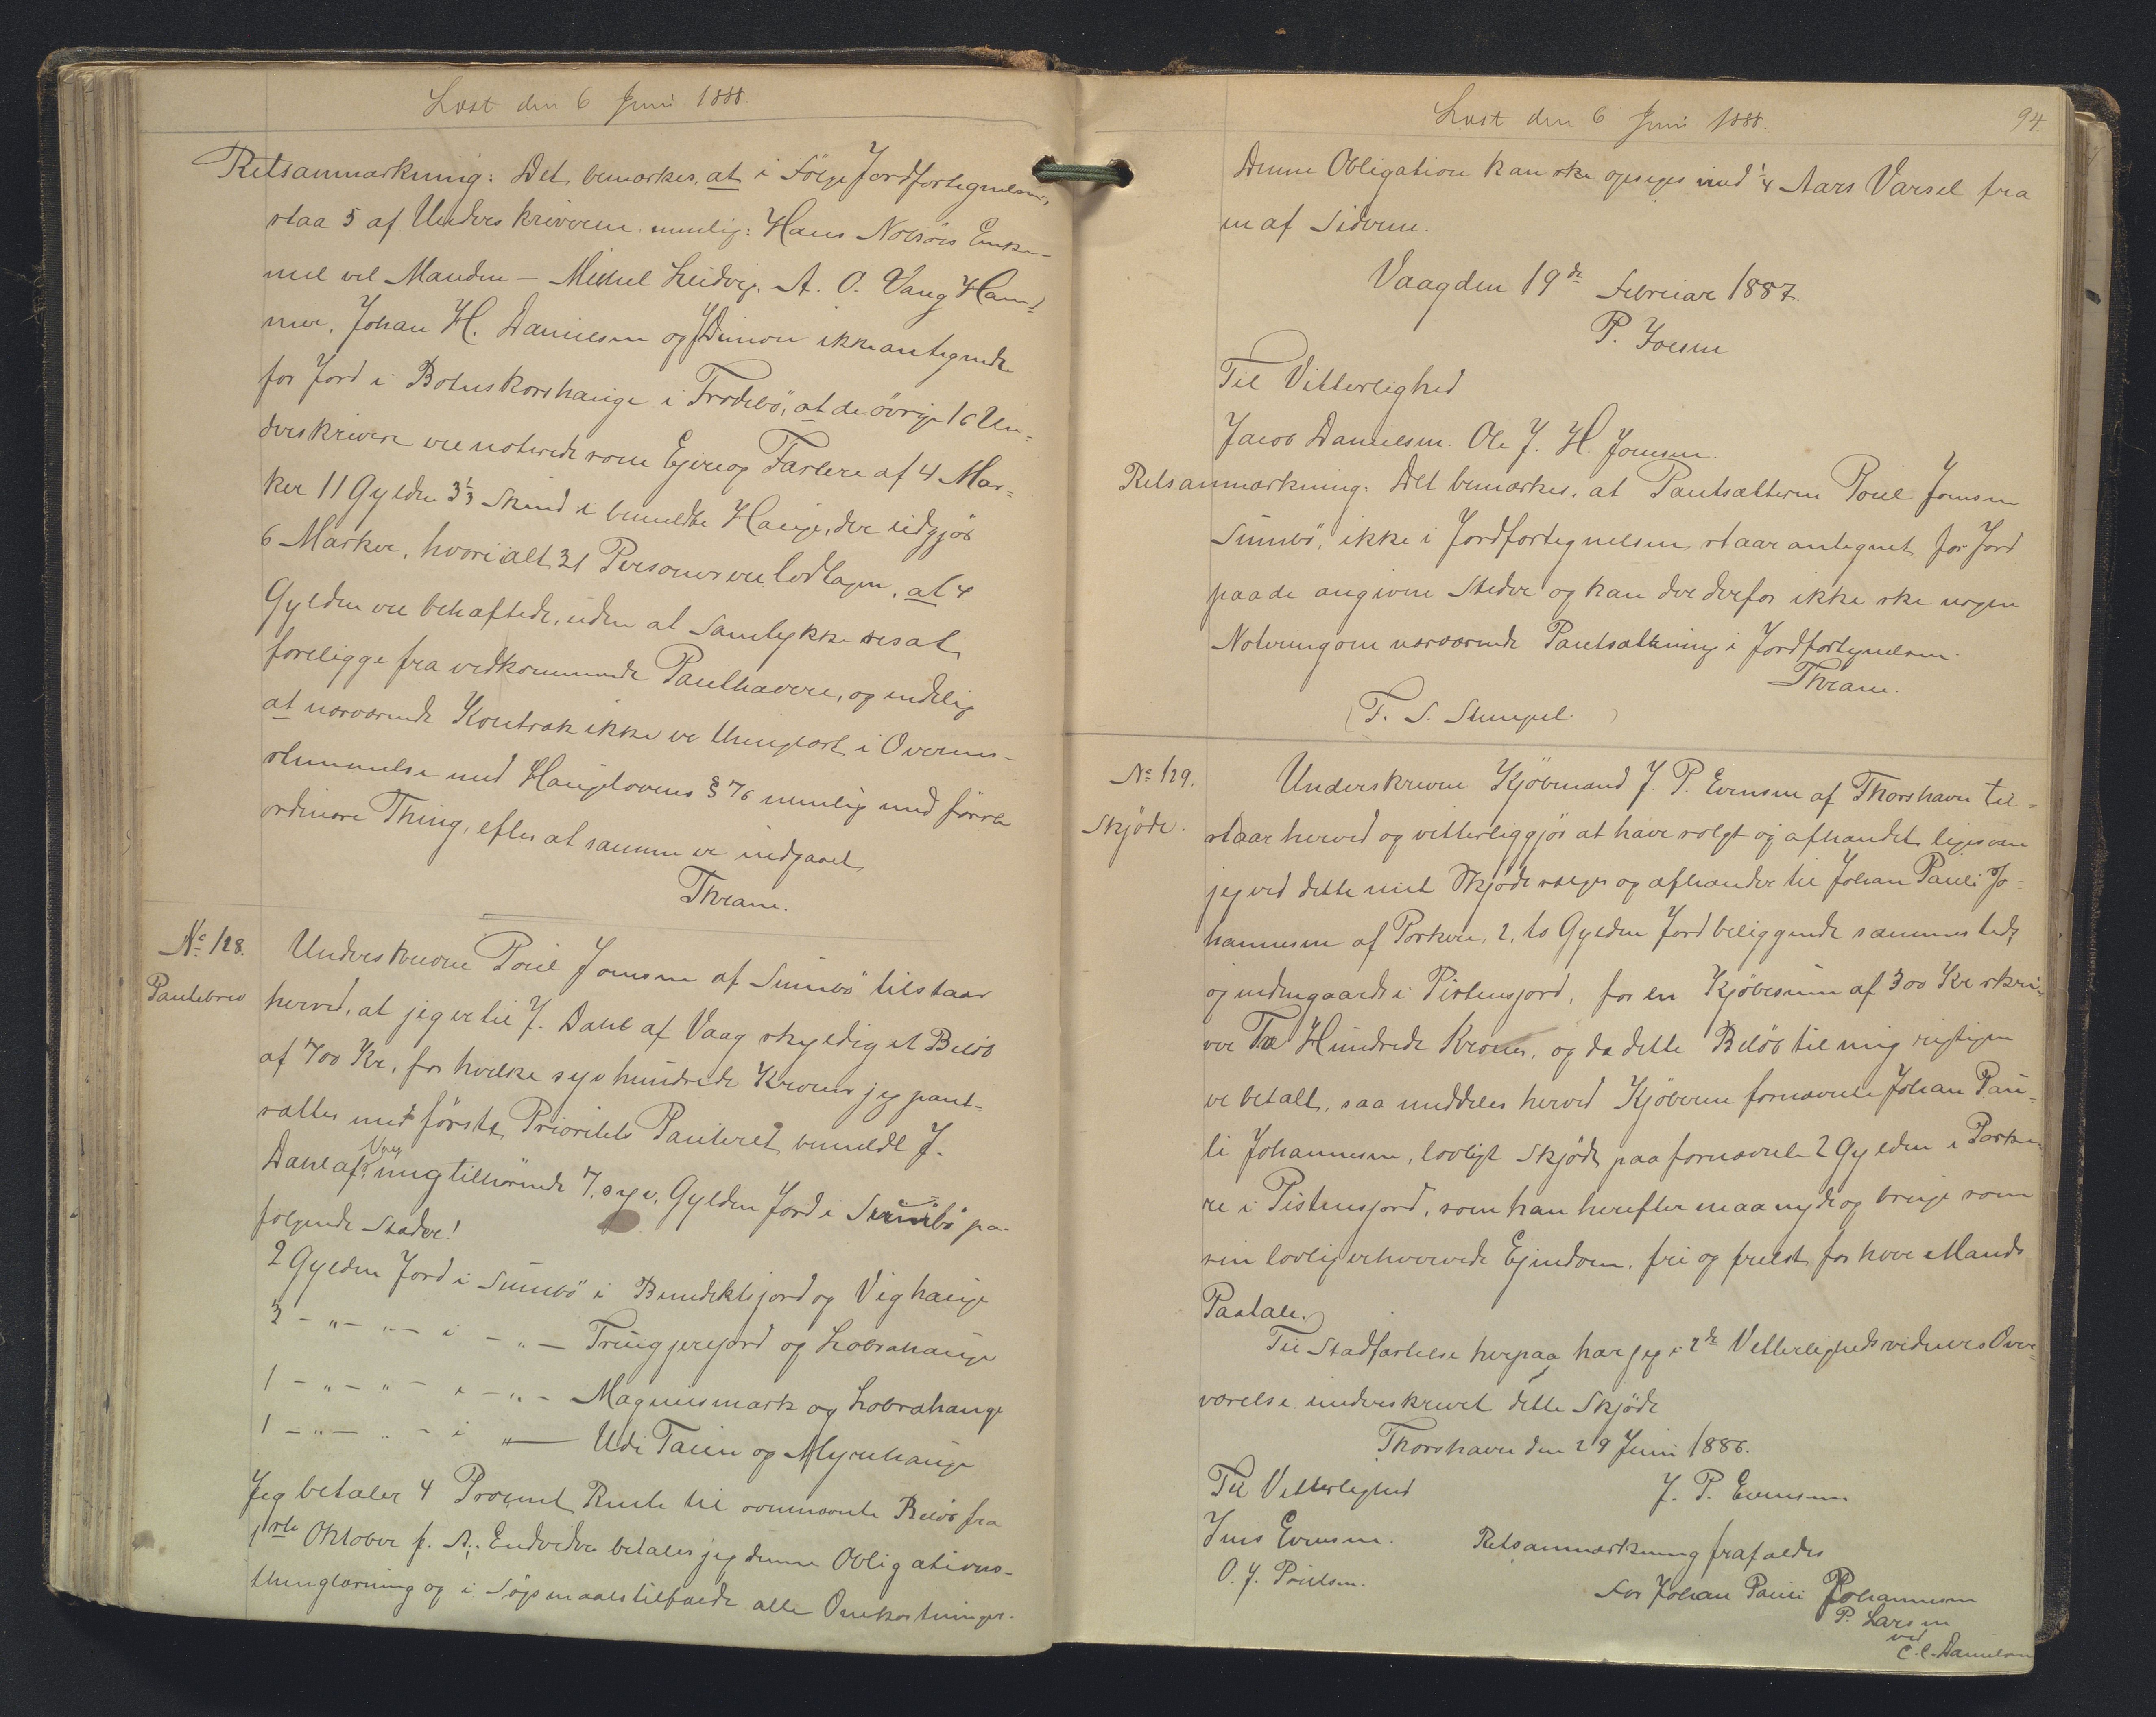 Læst den 6 Juni 1888.
Retsanmærkning: Det bemærkes, at i Følge Jordfortegnelsen,
staa 5 af Underskriverne nemlig: Hans Nolsøes Enke –
mel vel Manden – Michel Ludvig, A. O. Vang Ham¹
mer, Johan H. Danielsen og J Dimon ikke antegnede
for Jord i Botnskorshauge i Frodebö, at de övrige 16 Un-
derskrivere ere noterede som Ejere og Fæstere af 4 Mar-
ker 11 Gylden 3⅓ Skind i bemeldte Hauge, der udgjör
6 Marker, hvori alt 31 Personer ere lodtagen, at 4
Gylden ere behæftede, uden at Samtykke sesat
foreligge fra vedkommende Panthavere, og endelig
at nærværende Kontrak ikke er thinglæst i Overens-
stemmelse med Haugelovens § 76 nemlig ved første
ordinære Thing, efter at samme er indgaaet
Thrane.
No 128.
Pantebrev
Underskrevne Poul Joensen af Sumbö tilstaar
herved, at jeg er til J. Dahl af Vaag skyldig et Belöb
af 700 Kr, for hvilke syv hundrede Kroner jeg pant-
sætter med förste Prioritets Panteret bemeldt J.
Dahl af Vaag mig tilhörende 7, syv, Gylden Jord i Sumbö paa
følgende Stæder!
2 Gylden Jord i Sumbö i Benediktejord og Vighauge
3 – " – " – i – " – Trugjerejord og Lobrahauge
1 – " – " – i – " – Magnusmark og Lobrahauge
1 – " – " – i " – Udi Taun og Myruhauge
Jeg betaler 4 Procent Rente til ovennævnte Belöb fra
1ste Oktober f. A.; Endvidere betaler jeg denne Obligations-
thinglæsning og i Søgsmaalstilfælde alle Omkostninger.
Læst den 6 Juni 1888.
94.
Denne Obligation kan ske opsiges med ¼ Aars Varsel fra
en af Siderne.
Vaag den 19de Februar 1887.
P. Joensen
Til Vitterlighed
Jacob Danielsen. Ole J. H. Joensen.
Retsanmærkning: Det bemærkes, at Pantsætteren Poul Joensen
Sumbö, ikke i Jordfortegnelsen staar antegnet for Jord
paa de angivne Steder og kan der derfor ikke ske nogen
Notering om nærværende Pantsætning i Jordfortegnelsen.
Thrane.
(T. S. Stempel.)
No 129.
Skjøde.
Underskrevne Kjöbmand J. P. Evensen af Thorshavn til-
staar herved og vitterliggjör at have solgt og afhændet ligesom
jeg ved dette mit Skjöde sælger og afhænder til Johan Pauli Jo-
hannesen af Porkere, 2, to Gylden Jord beliggende sammesteds
og indengaards i Pistensjord, for en Kjöbesum af 300 Kr skri-
ver Tre Hundrede Kroner, og da dette Belöb til mig rigtigen
er betalt, saa meddeles herved Kjöberen fornævnte Johan Pau-
li Johannesen, lovligt Skjöde paa fornævnte 2 Gylden i Porke-
re i Pistensjord, som han herefter maa nyde og bruge som
sin lovlig erhvervede Ejendom, fri og frelst for hver Mands
Paatale.
Til Stadfæstelse herpaa har jeg i 2de Vitterlighedsvidners Over-
værelse underskrevet dette Skjöde
Thorshavn den 29 Juni 1886.
Til Vitterlighed
J. P. Evensen
Jens Evensen.
Retsanmærkning frafaldes
O. J. Poulsen.
For Johan Pauli Johannesen
P. Larsen
ved
C. C. Danielsen